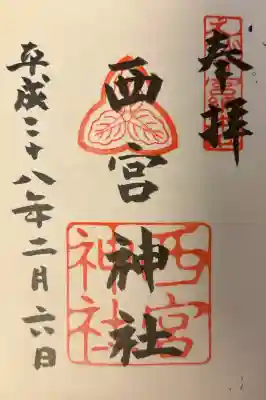 奉拝
西宮神社
平成二十八年二月六日
西宮
神社